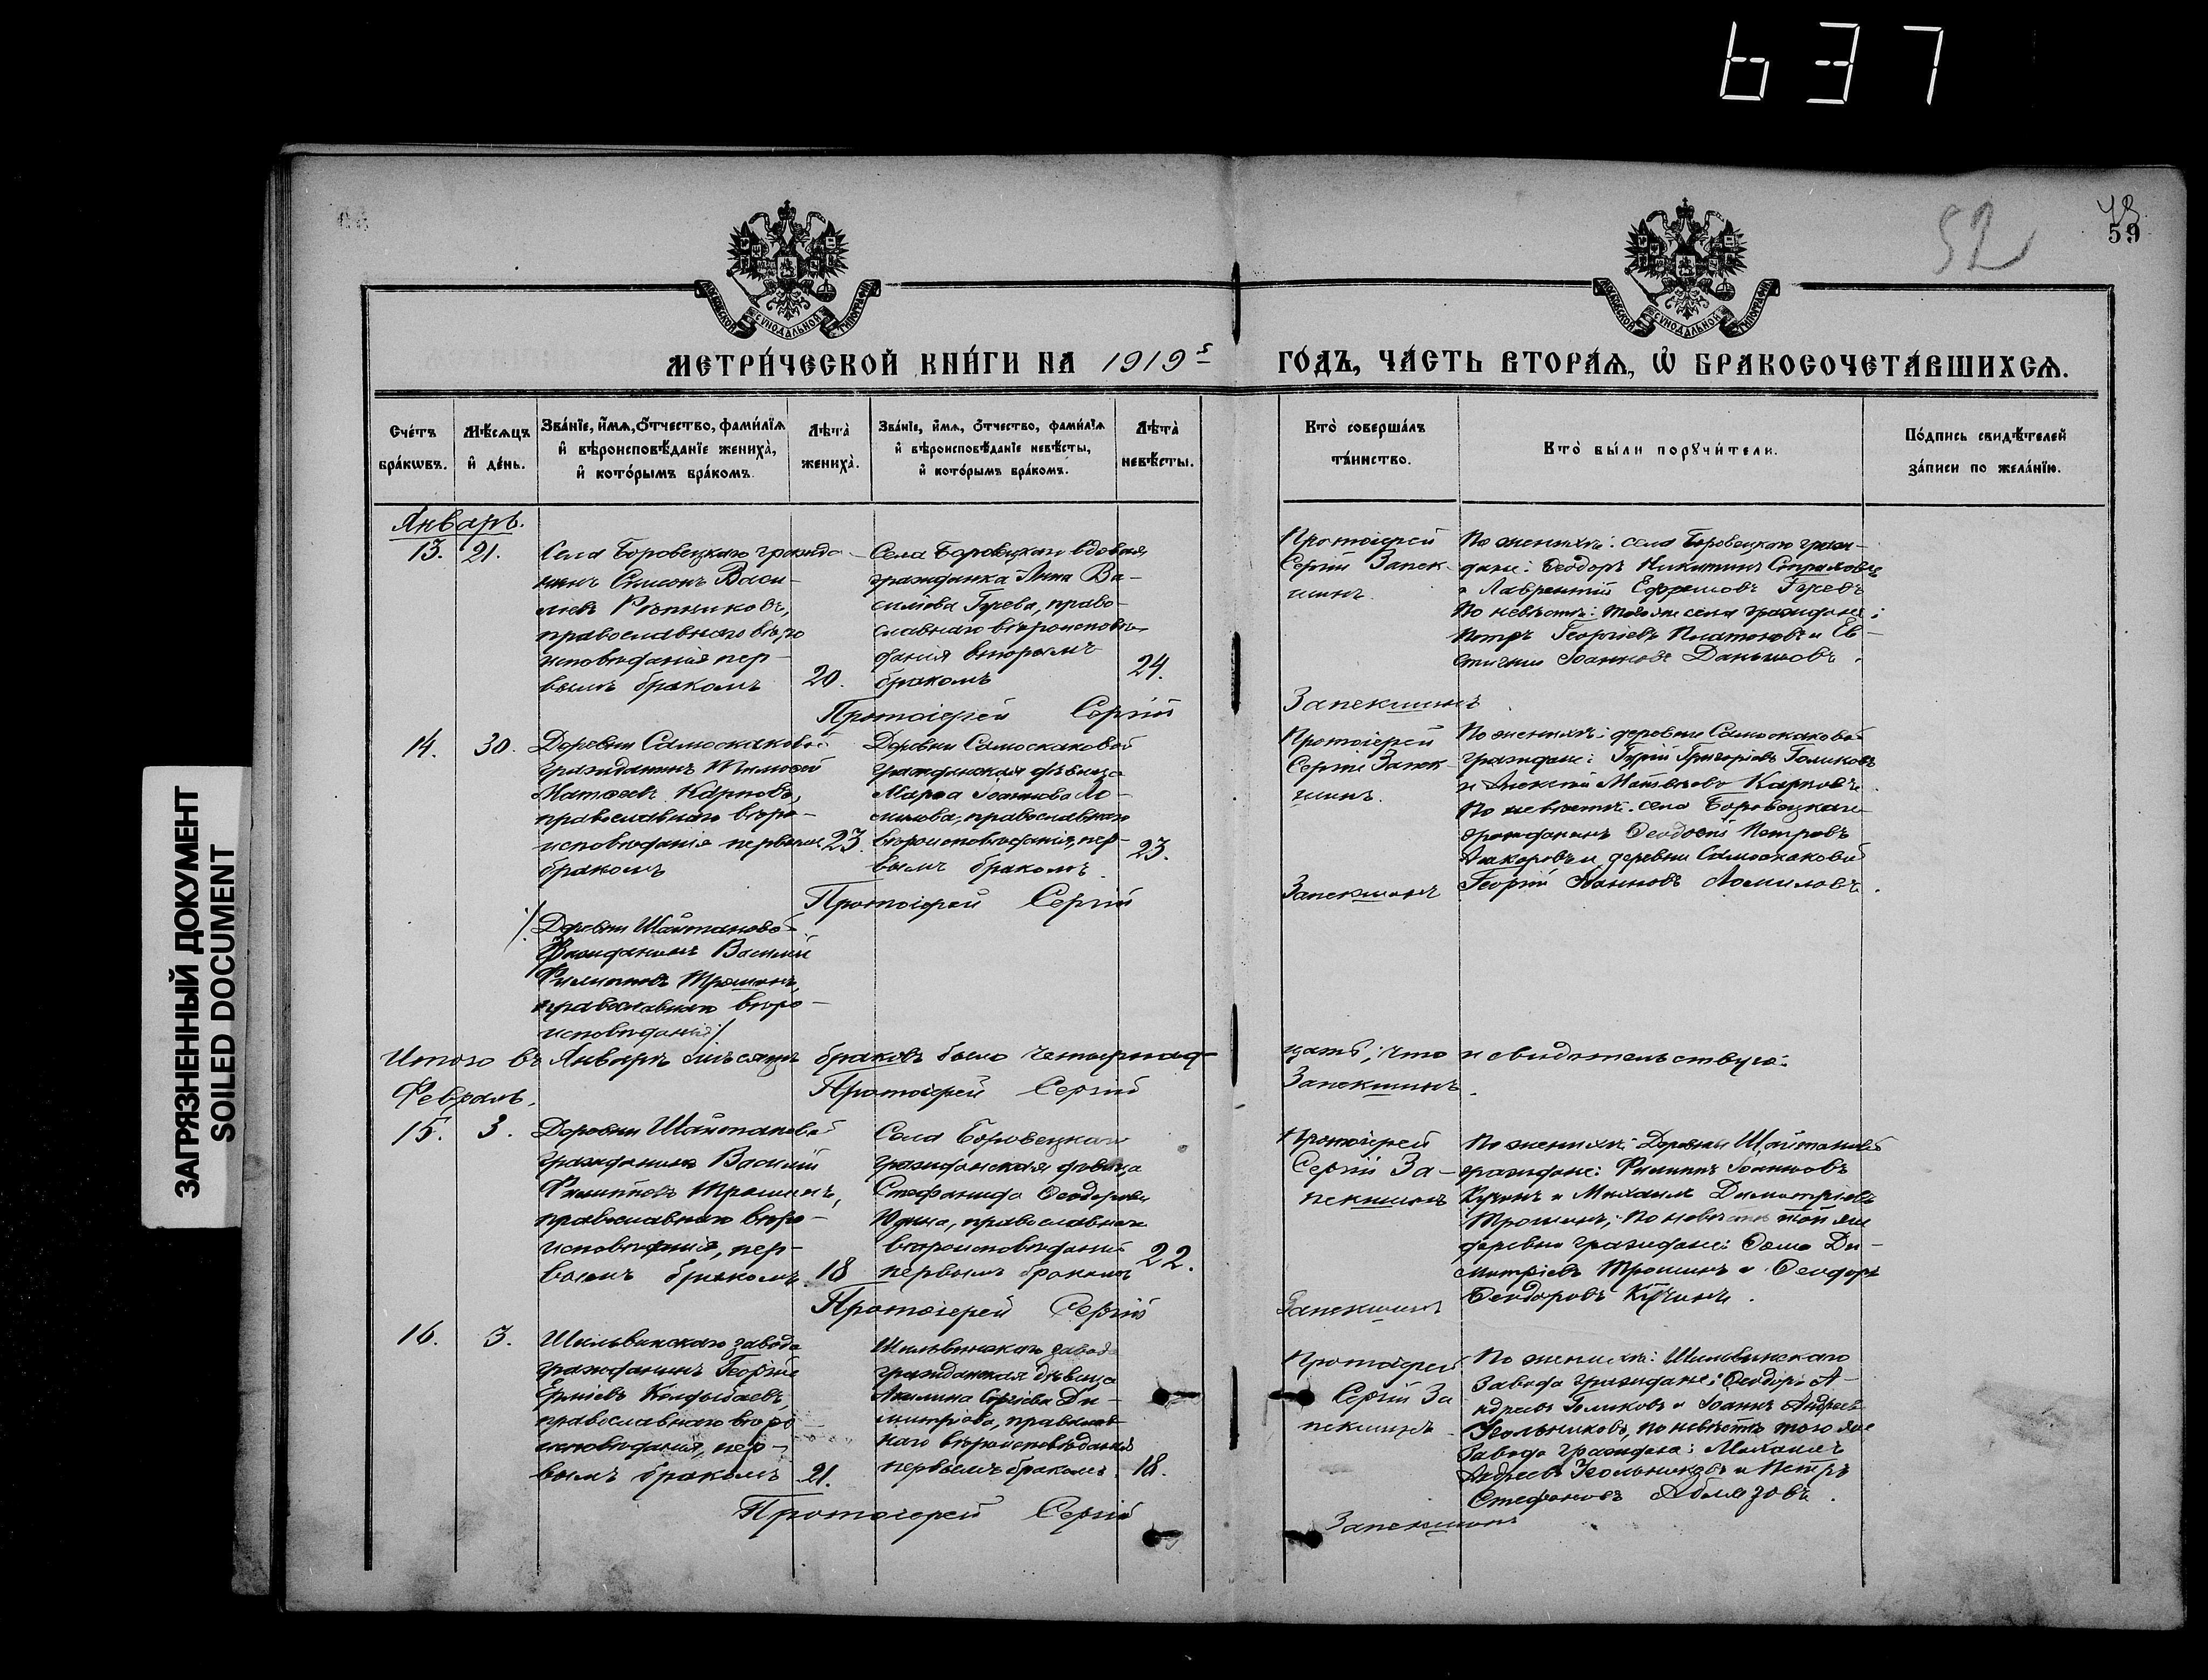 637
ЗАГРЯЗНЕННЫЙ ДОКУМЕНТ
SOILED DOCUMENT
52
43
59
МОСКОВСКОЙ СѴНОДАЛЬНОЙ ТИПОГРАФІИ
МОСКОВСКОЙ СѴНОДАЛЬНОЙ ТИПОГРАФІИ
МЕТРИ́ЧЕСКОЙ КНИ́ГИ НА 1919 ГО́ДЪ, ЧА́СТЬ ВТОРА́Ѧ, Ѽ БРАКОСОЧЕТА́ВШИХСѦ.
Сче́тъ
бра́кѡвъ.
Мѣ́сѧцъ
и҆ де́нь.
Зва́нїе, и҆́мѧ, ѻ҆́тчество, фами́лїѧ
и҆ вѣроисповѣ́данїе жениха̀,
и҆ кото́рымъ бра́комъ.
Лѣта̀
жениха̀.
Зва́нїе, и҆́мѧ, ѻ҆́тчество, фами́лїѧ
и҆ вѣроисповѣ́данїе невѣ́сты,
и҆ кото́рымъ бра́комъ.
Лѣта̀
невѣ́сты.
Кто̀ соверша́лъ
та́инство.
Кто̀ бы́ли порꙋчи́тели.
По́дпись свидѣ́телей
за́писи по жела́нїю.
Январь.
13.
21.
Села Боровецкаго гражда-
нинъ Симонъ Васи-
лiевъ Рѣпниковъ,
православнаго вѣро
исповѣданія пер-
вымъ бракомъ
20.
Села Боровецкаго вдовая
гражданка Анна Ва-
силіева Гурева, право-
славнаго вѣроисповѣ-
данія вторымъ
бракомъ
24.
Протоіерей
Сергій Запек-
шинъ.
По женихѣ: села Боровецкаго граж-
дане: Ѳеодоръ Никитинъ
и Лаврентій Ефремовъ Гуревъ
По невѣстѣ: того же села граждане:
Петръ Георгіевъ Платоновъ и Ев-
Іоанновъ Даниловъ.
Протоіерей Сергій Запекшинъ
14.
30.
Деревни Самоскаковой
гражданинъ Тимоѳей
Матѳеевъ Карповъ,
православнаго вѣро-
исповѣданія первымъ
бракомъ
23.
Деревни Самоскаковой
гражданская дѣвица
Марѳа Іоаннова Ло-
милова, православнаго
вѣроисповѣданія, пер-
вымъ бракомъ.
23.
Протоіерей
Сергій Запек-
шинъ.
По женихѣ: деревни Самоскаковой
граждане: Гурій Григоріевъ Голиковъ
и Алексій Матвѣевъ Карповъ.
По невѣстѣ: села Боровецкаго
гражданинъ Ѳеодосій Петровъ
и деревни Самоскаковой
Георгій Іоанновъ Ломиловъ.
Протоіерей Сергій Запекшинъ
/. Деревни Шайтановой
Гражданинъ Василій
Филипповъ Трошинъ,
православнаго вѣро-
исповѣданія /
Итого въ Январѣ мѣсяцѣ браковъ было четырнад-цать, что и свидѣтельствую:
Протоіерей Сергій Запекшинъ.
Февраль.
15.
3.
Деревни Шайтановой
гражданинъ Василій
Филипповъ Трошинъ,
православнаго вѣро-
исповѣданія, пер-
вымъ бракомъ
18
Села Боровецкаго
гражданская дѣвица
Стефанида Ѳеодорова
Юдина, православнаго
вѣроисповѣданія
первымъ бракомъ
22.
Протоіерей
Сергій За-
пекшинъ
По женихѣ: Деревни Шайтановой
граждане: Филиппъ Іоанновъ
Кучинъ и Михаилъ Димитріевъ
Трошинъ; по невѣстѣ той же
деревни граждане: Ѳома Ди-
митріевъ Трошинъ и Ѳеодоръ
Ѳеодоровъ Кучинъ.
Протоіерей Сергій Запекшинъ
16.
3.
Шильвинскаго завода
гражданинъ Георгій
Ермiевъ Колдыбаевъ,
православнаго вѣро
исповѣданія, пер-
вымъ бракомъ
21.
Шильвинскаго завода
гражданская дѣвица
Акилина Сергіева Ди-
митріева, православ-
наго вѣроисповѣданія
первымъ бракомъ.
18.
Протоіерей
Сергій За
пекшинъ
По женихѣ: Шильвинскаго
Завода граждане: Ѳеодоръ А-
ндреевъ Голиковъ и Іоаннъ Андреевъ
Угольниковъ, по невѣстѣ того же
Завода граждане: Михаилъ
Андреевъ Угольниковъ и Петръ
Стефановъ Аблязовъ.
Протоіерей Сергій Запекшинъ